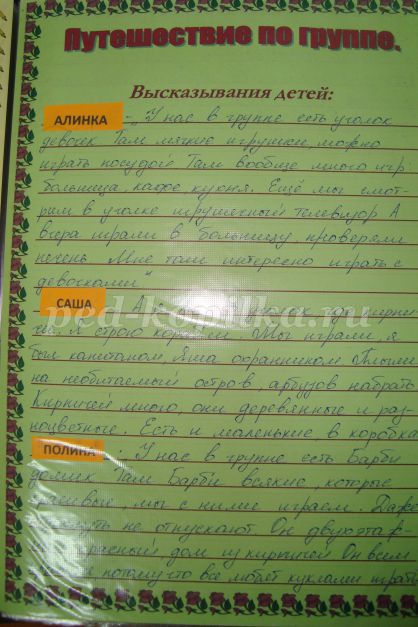 Путешествие по группе.
Высказывания детей:
АЛИНКА - „У нас в группе есть уголок
девочек. Там мягкие игрушки, можно
играть посудой. Там вообще много игр:
больница, кафе, кухня. Ещё мы смот-
рим в уголке игрушечный телевизор. А
вчера играли в больницу, проверяли
печень. Мне там интересно играть с
девочками“
САША - А уголок, где кирпи-
чи. Я строю корабли. Мы играли, я
был капитаном, Яша охранником. Плыли
на необитаемый остров, арбузов набрать.
Кирпичей много, они деревянные и раз-
ноцветные. Есть и маленькие в коробка
ПОЛИНА - „У нас в группе есть Барби
домик. Там Барби всякие, которые
красивые, мы с ними играем. Даже
не отпускают. Он двухэтаж-
красный дом из кирпичей. Он всем
потому что все любят куклами играть
ped-kopilka.ru